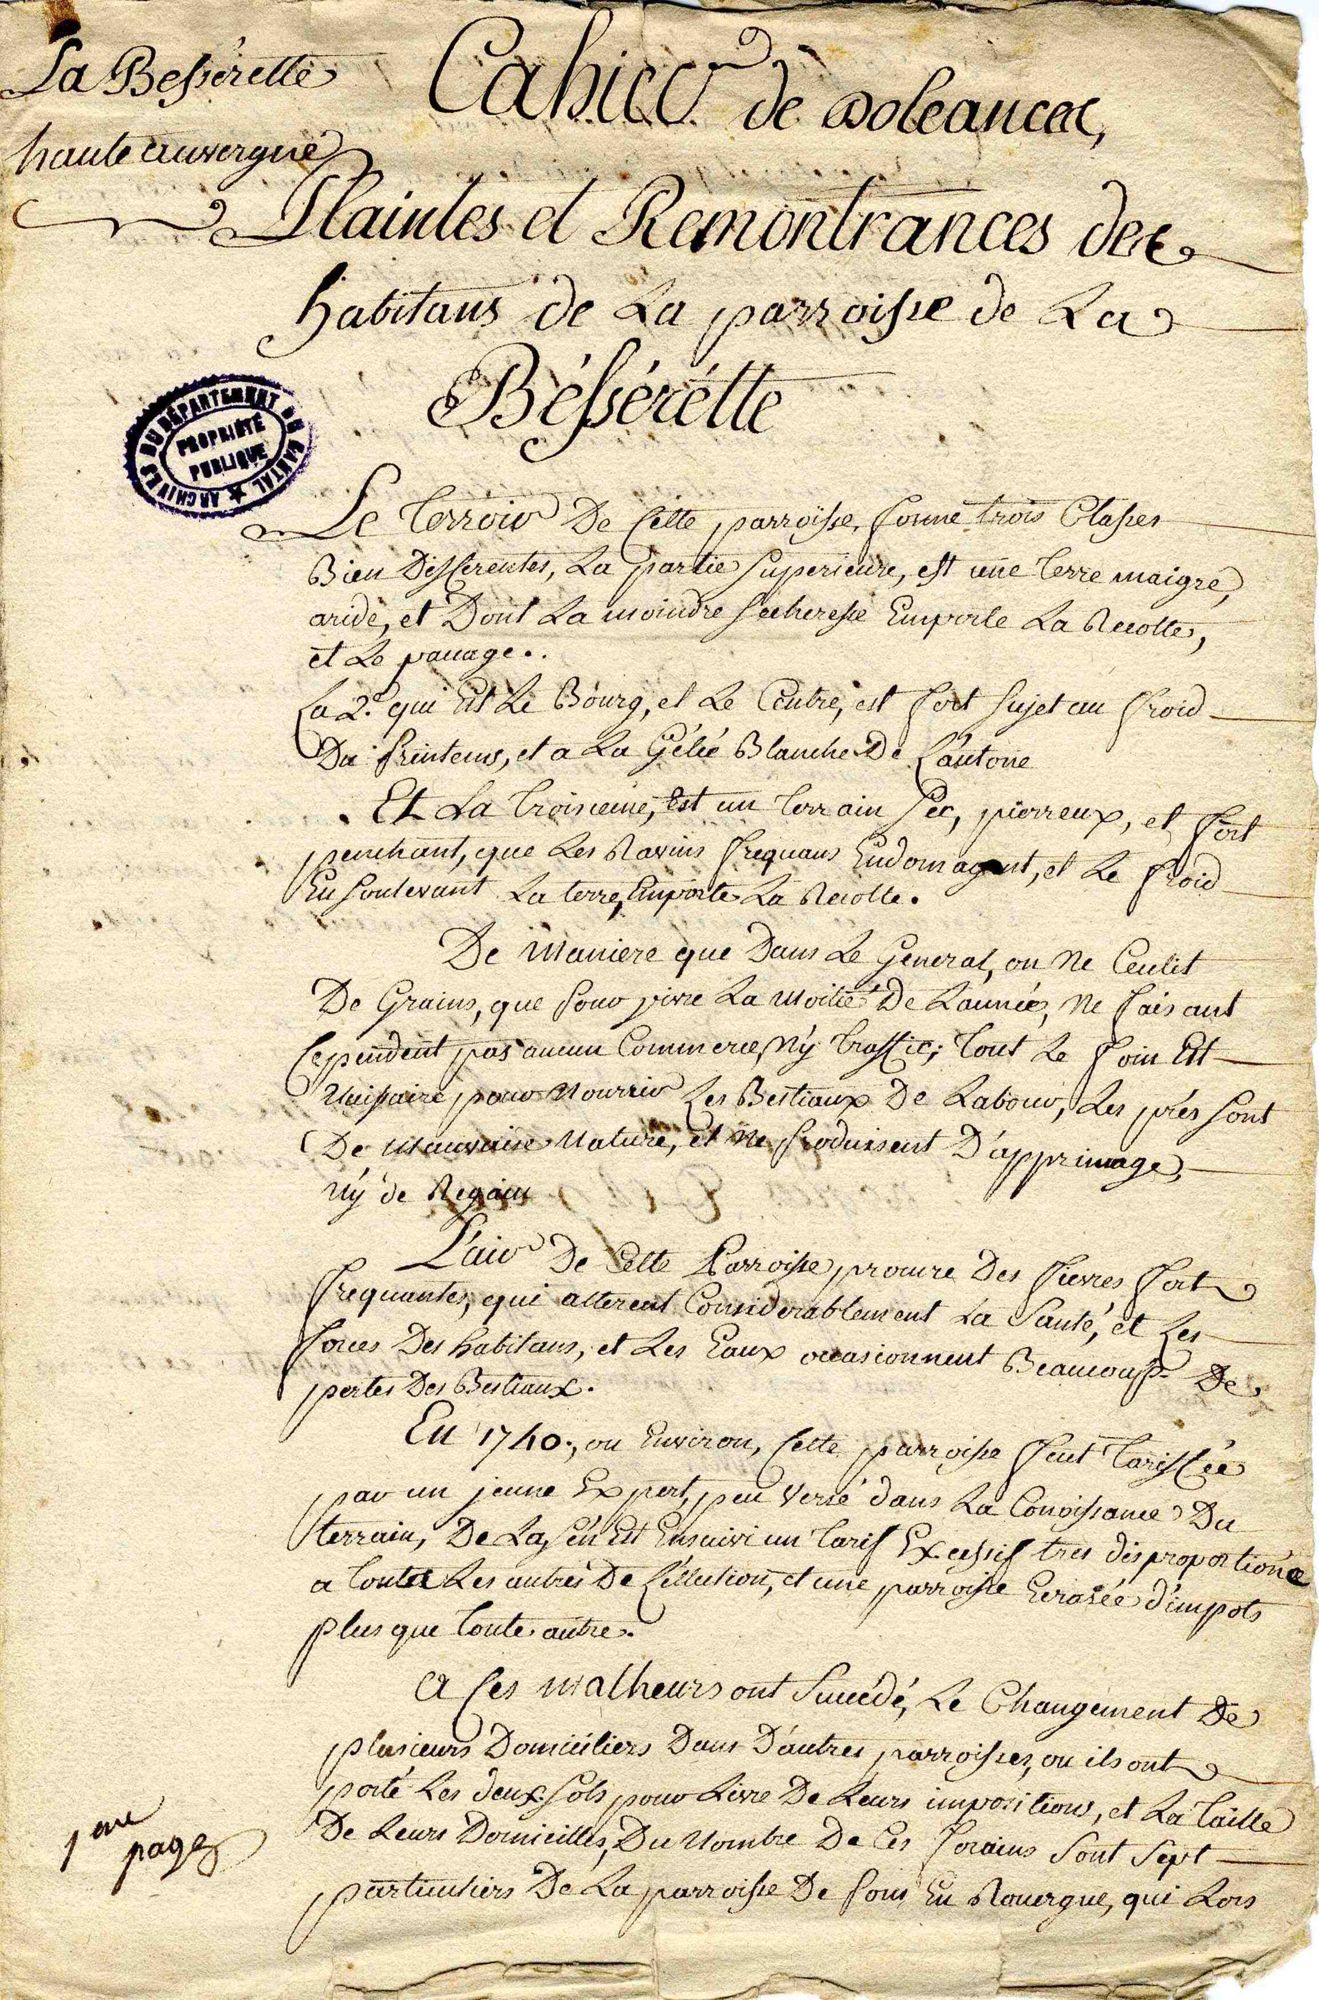 La Besserette
haute auvergne
Cahier de doleances,
Plaintes et Remontrances des
habitans de La parroisse de La
Béssérétte
ARCHIVES DU DÉPARTEMENT DU CANTAL
PROPRIÉTÉ
PUBLIQUE
Le Terroir De Cette parroisse, forme trois Classes
Bien Differentes, La partie Superieure, est une Terre maigre,
aride, et Dont La moindre Secheresse Emporte La Recolte,
et Le pacage..
La 2.e qui Est Le Bourg, et Le Centre, est fort Sujet au froid
Du printems, et a La Gélée Blanche De L'autone
Et La Troisieme, Est un Terrain Sec, pierreux, et fort
penchant, que Les Ravins frequans Endomagent, et Le froid
En Soulevant La terre, Emporte La Recolte.
De Maniere que Dans Le General, on Ne Ceulit
De Grains, que pour vivre La Moitié De L'année, Ne faisant
Cependent pas aucun Commerce, Ny Traffic; Tout Le foin Est
Necessaire pour Nourrir Les Bestiaux De Labour, Les prés Sont
De Mauvaise Nature, et Ne produisent D'apprimage,
Ny de Regain
L'air De Cette Parroisse procure Des fievres fort
frequantes, qui alterent Considerablement La Santé, et Les
forces Des habitans, et Les Eaux occasionnent Beaucoup De
pertes Des Bestiaux.
En 1740., ou Environ, Cette parroisse feut Tariffée
par un jeune Expert, peu Versé dans La Conoissance Du
terrain, De La s'én Est Ensuivi un Tarif Excessif tres disproportioné
a Toutes Les autres De L'éllection, et une parroisse Ecrasée d'impots
plus que Toute autre.
a Ces malheurs ont Succédé, Le Changement De
plusieurs Domiciliers Dans D'autres parroisses, ou ils ont
porté Les deux Sols pour Livre De Leurs impositions, et La Taille
De Leurs Domicilles, Du Nombre De Ces forains Sont Sept
particuliers De La parroisse De Pons En Rouergue, qui Lors
1.ere
page